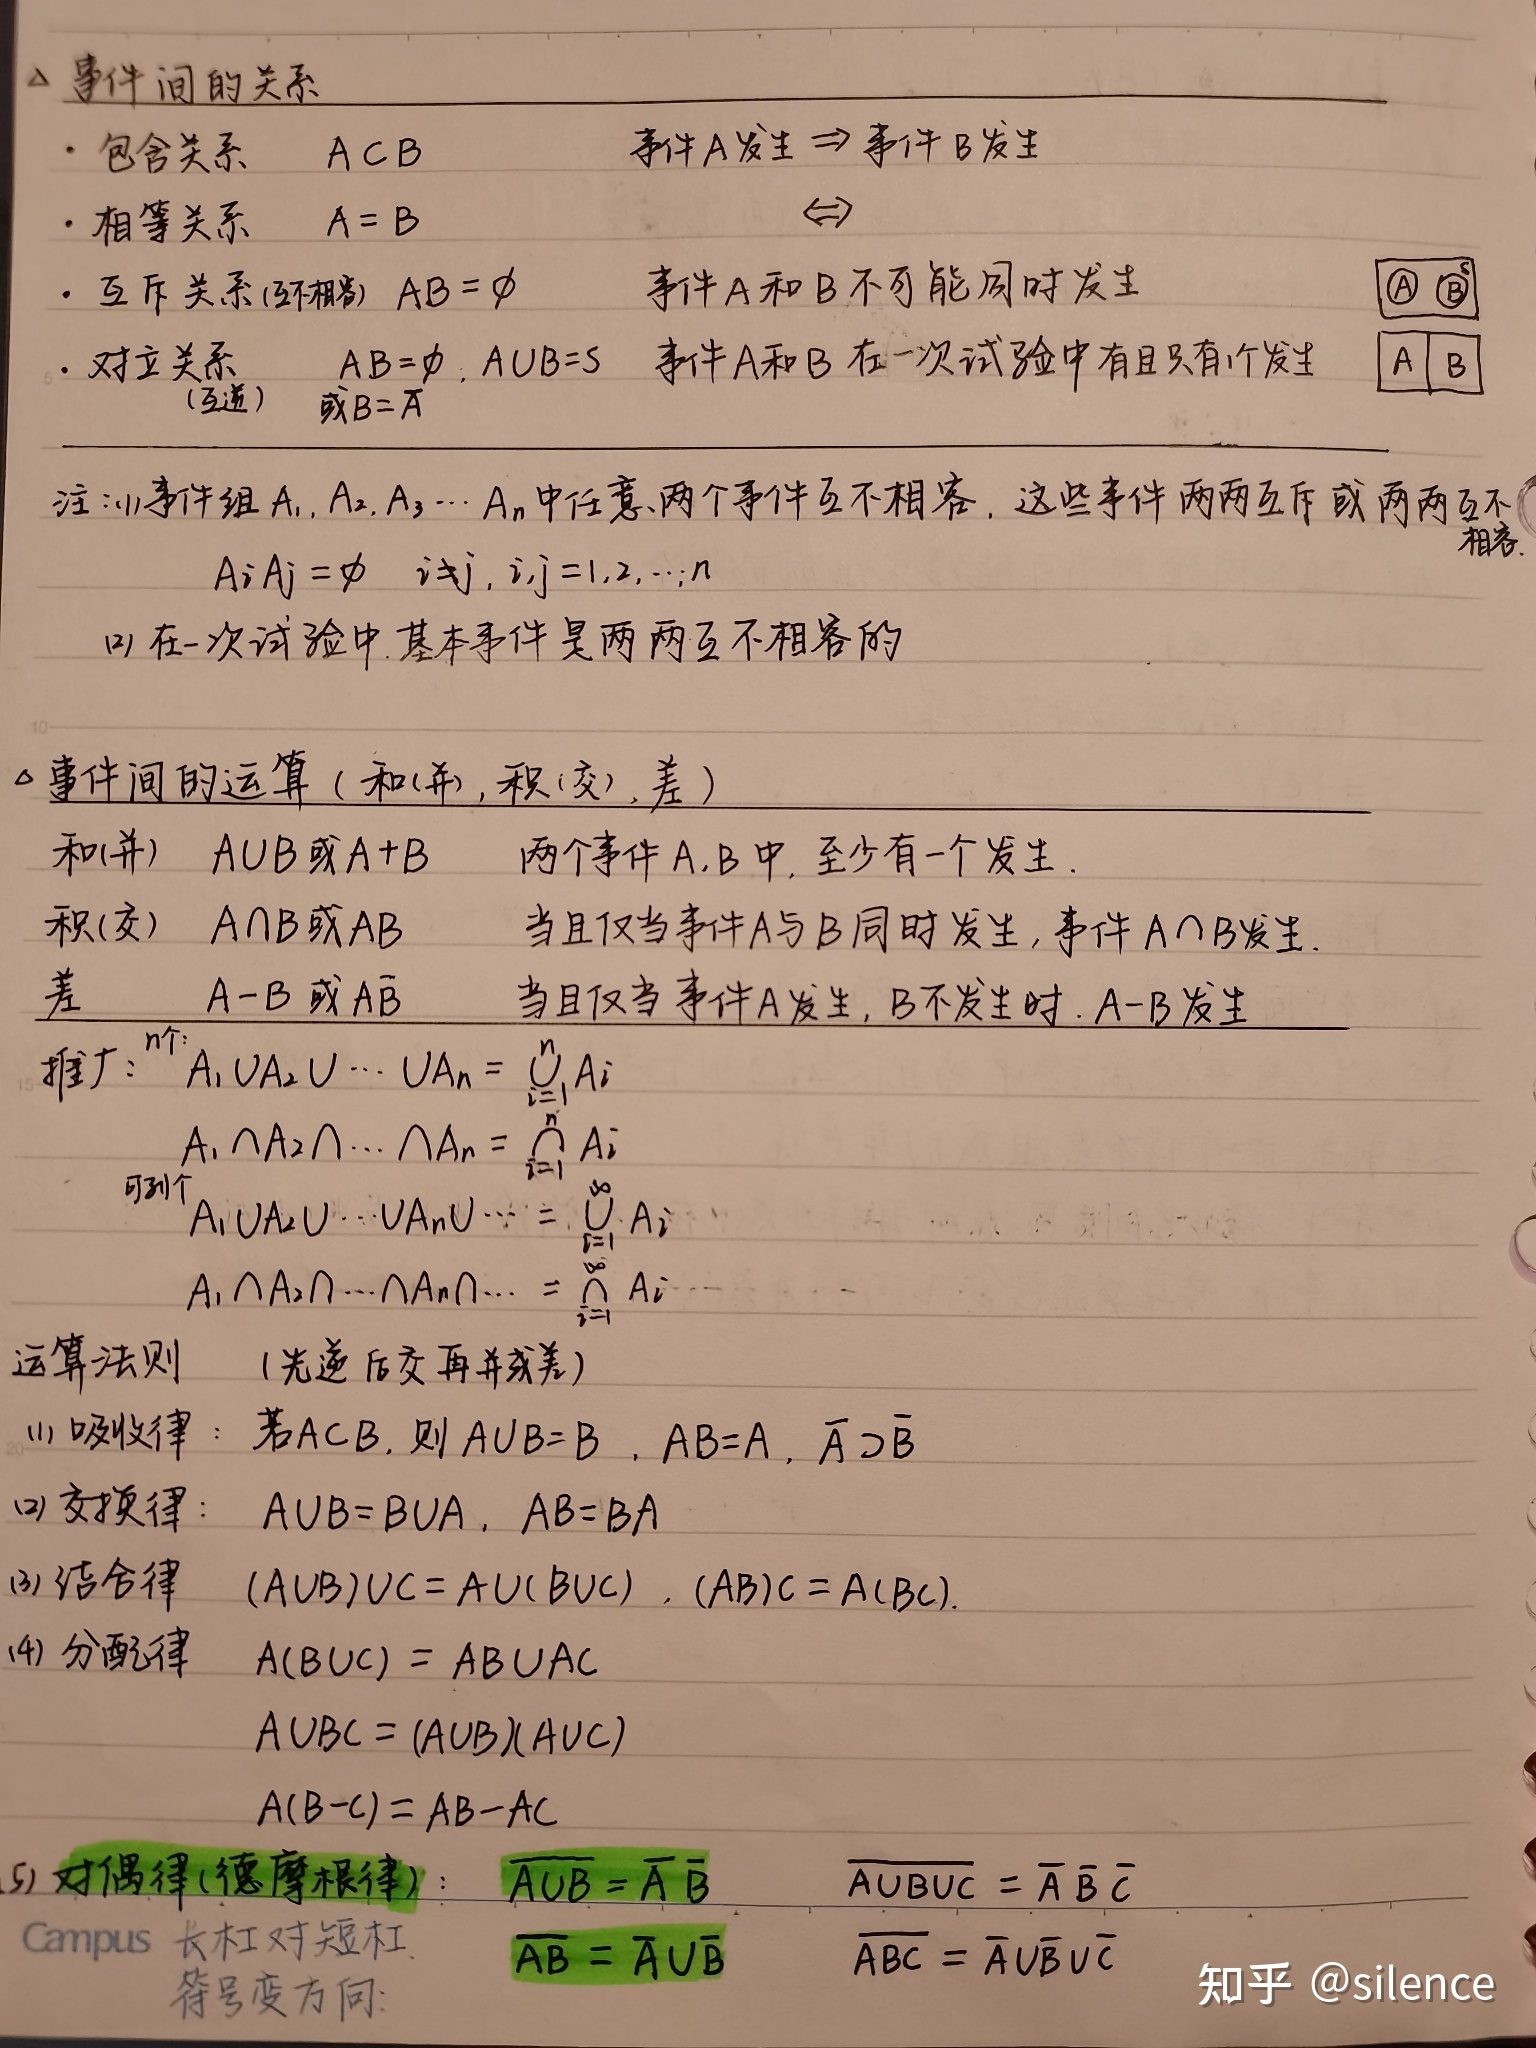 △ 事件间的关系
· 包含关系 A⊂B 事件A发生 ⇒ 事件B发生
· 相等关系 A=B ⇔
· 互斥关系(互不相容) AB=∅ 事件A和B不可能同时发生 A B S
· 对立关系 AB=∅, A∪B=S 事件A和B在一次试验中有且只有1个发生 A B
(互逆) 或B=A̅
注:(1)事件组A₁, A₂, A₃⋯Aₙ中任意两个事件互不相容, 这些事件两两互斥或两两互不
相容.
AᵢAⱼ=∅ i≠j, i,j=1,2,⋯,n
(2)在一次试验中.基本事件是两两互不相容的
10
△事件间的运算(和(并),积(交),差)
和(并) A∪B或A+B 两个事件A,B中,至少有一个发生.
积(交) A∩B或AB 当且仅当事件A与B同时发生,事件A∩B发生.
差 A-B或AB̅ 当且仅当事件A发生,B不发生时.A-B发生
推广: n个: A₁∪A₂∪⋯∪Aₙ = ⋃ⁿᵢ₌₁ Aᵢ
A₁∩A₂∩⋯∩Aₙ = ⋂ⁿᵢ₌₁ Aᵢ
可列个 A₁∪A₂∪⋯∪Aₙ∪⋯ = ⋃^∞ᵢ₌₁ Aᵢ
A₁∩A₂∩⋯∩Aₙ∩⋯ = ⋂^∞ᵢ₌₁ Aᵢ
运算法则 (先逆后交再并或差)
(1) 吸收律: 若A⊂B, 则A∪B=B, AB=A, A̅⊃B̅
(2) 交换律: A∪B=B∪A, AB=BA
(3) 结合律 (A∪B)∪C=A∪(B∪C), (AB)C=A(BC).
(4) 分配律 A(B∪C) = AB∪AC
A∪BC = (A∪B)(A∪C)
A(B-C) = AB-AC
(5) 对偶律(德摩根律): A̅∪̅B̅ = A̅ B̅ A̅∪̅B̅∪̅C̅ = A̅ B̅ C̅
Campus 长杠对短杠. A̅B̅ = A̅∪B̅ A̅B̅C̅ = A̅∪B̅∪C̅
符号变方向:
知乎 @silence